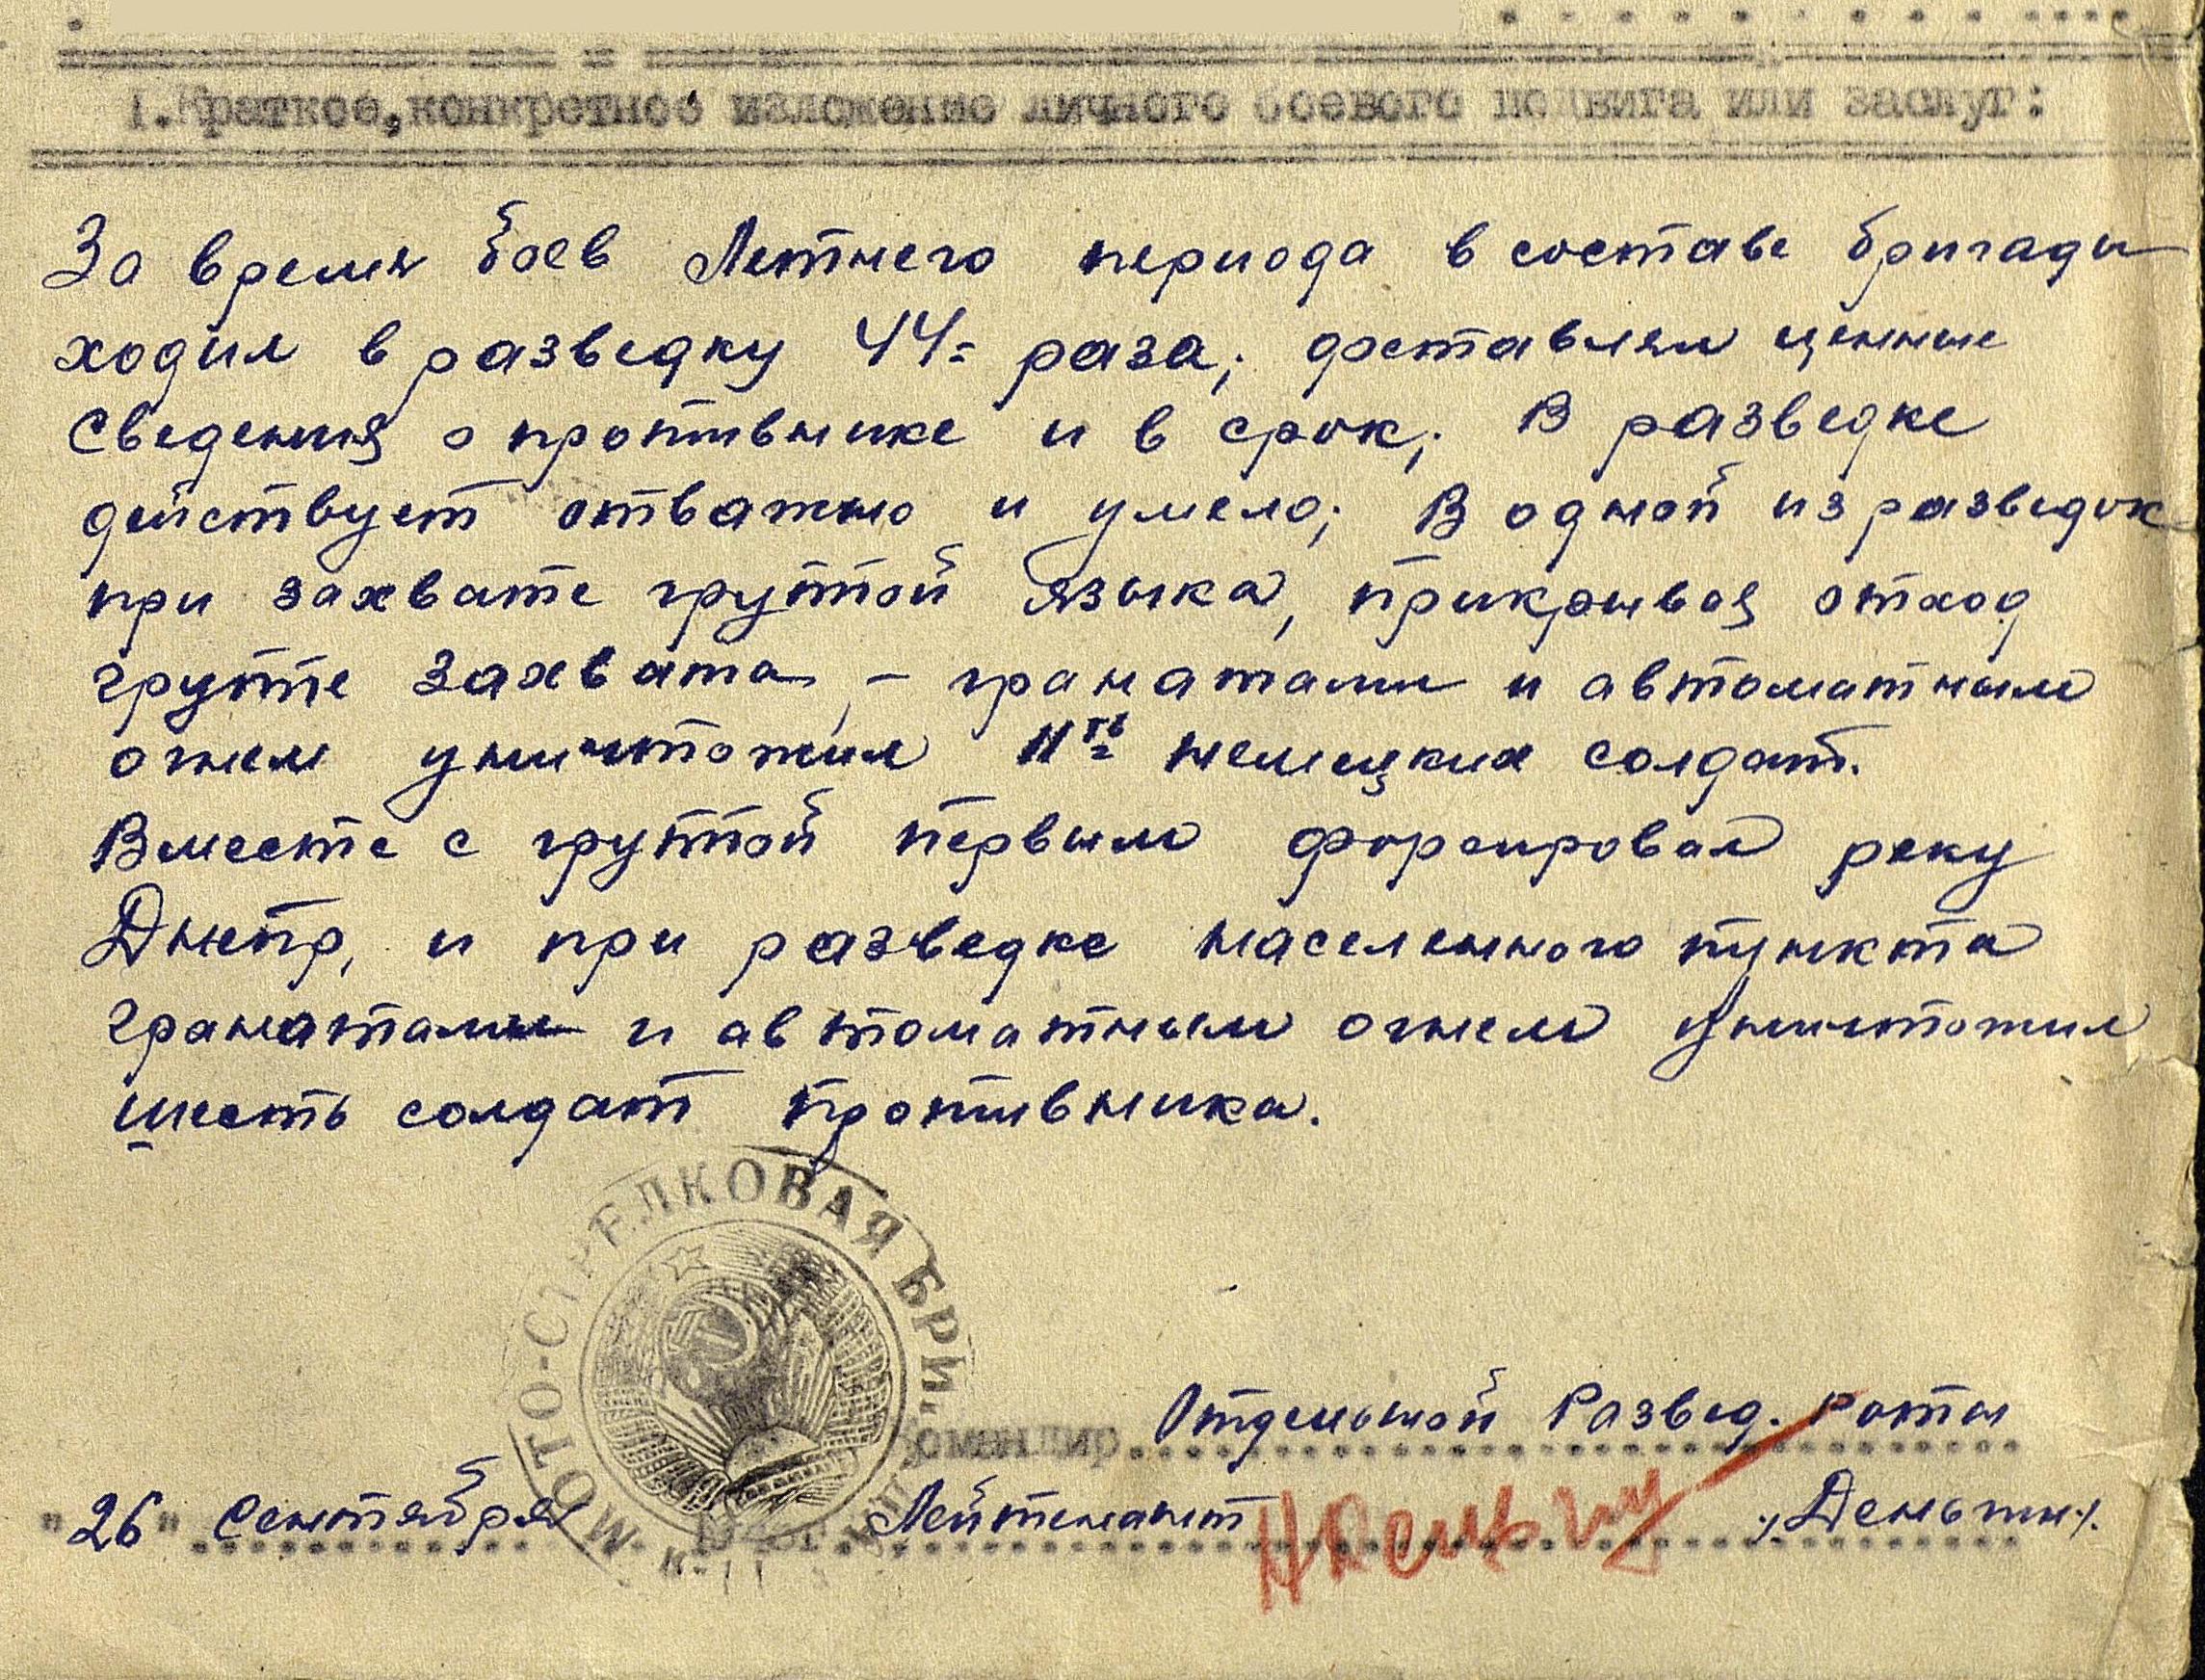 1. Краткое, конкретное изложение личного боевого подвига или заслуг:
За время боев Летнего периода в составе бригады
ходил в разведку 44= раза; доставлял ценные
сведения о противнике и в срок; В разведке
действует отважно и умело; В одной из разведок
при захвате группой языка, прикрывая отход
группе захвата, - гранатами и автоматным
огнем уничтожил 11ть немецких солдат.
Вместе с группой первым форсировал реку
Днепр, и при разведке населенного пункта
гранатами и автоматным огнем уничтожил
шесть солдат противника.
МОТО-СТРЕЛКОВАЯ БРИ
Командир Отдельной Развед. Роты
"26" Сентября 1943г. Лейтенант /Деньгин/.